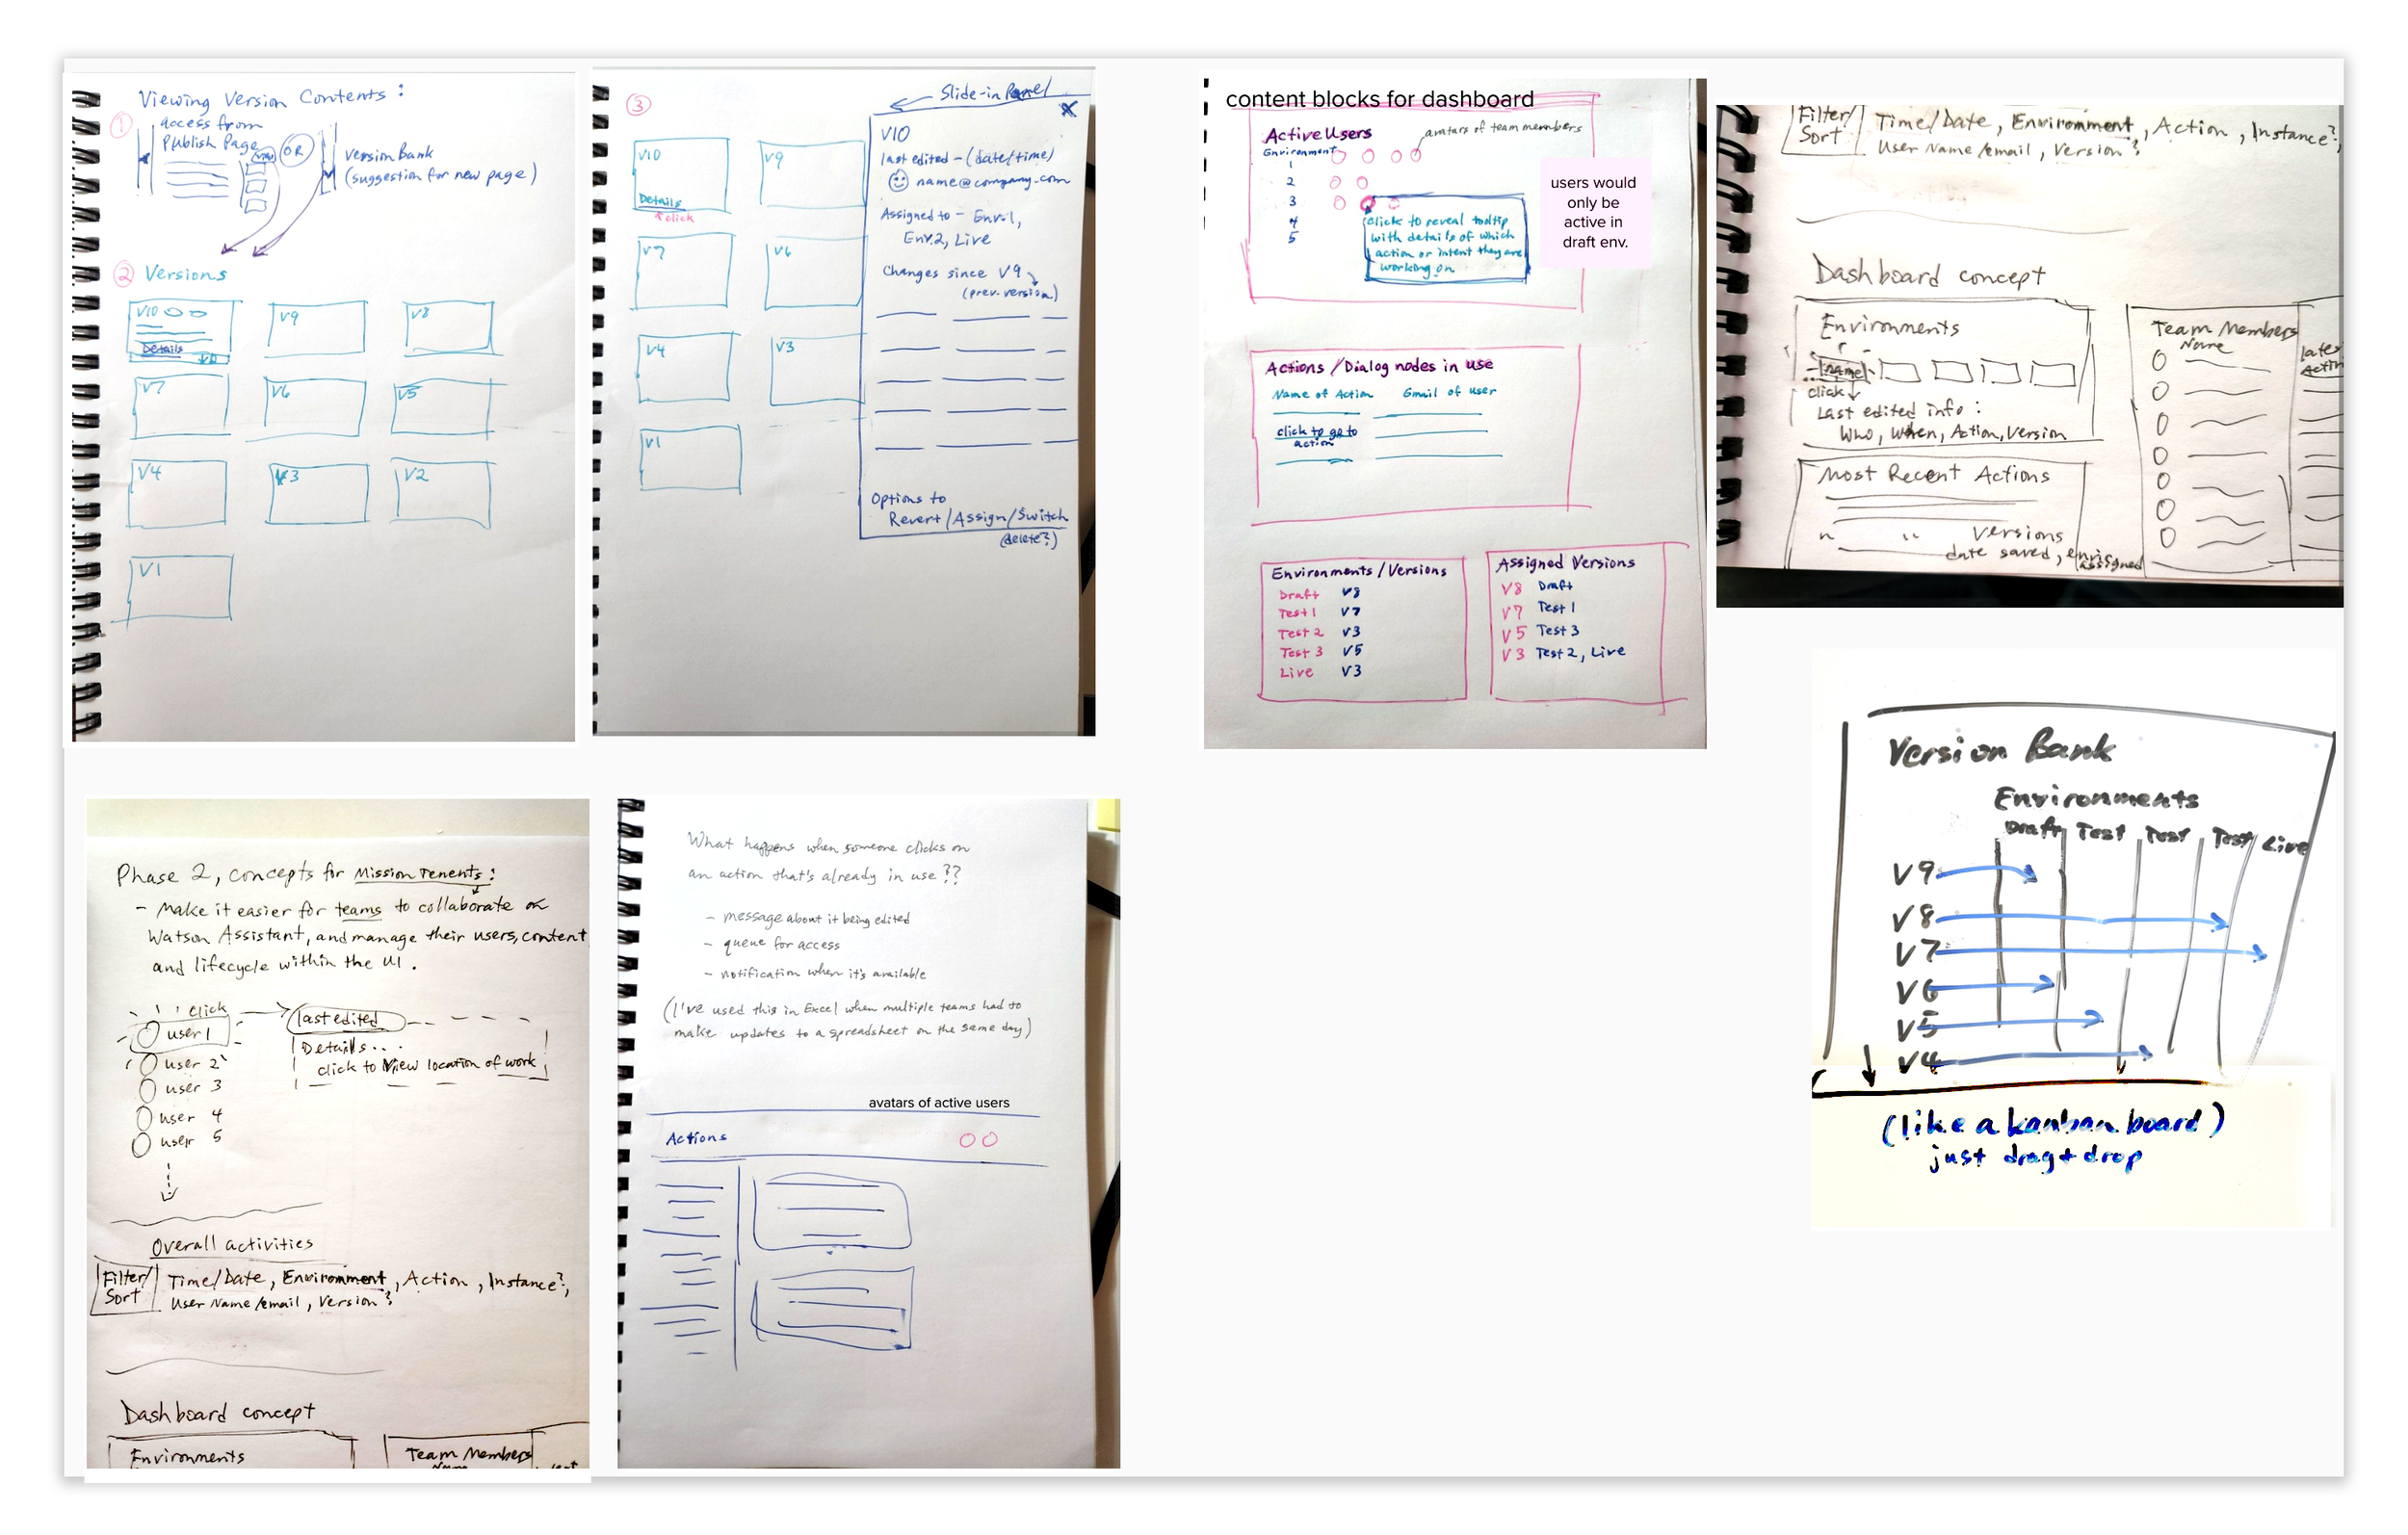 Viewing Version Contents:
1
access from
Publish Page
OR
Version Bank
(suggestion for new page)
2 Versions
V10
Details
V9
V8
V7
V6
V5
V4
V3
V2
V1
3
Slide-in Panel
X
V10
Details
click
V9
V7
V6
V4
V3
V1
V10
last edited - (date/time)
name@company.com
Assigned to - Env.1,
Env.2, Live
Changes since V9
(prev. version)
Options to
Revert/Assign/Switch
(delete?)
content blocks for dashboard
Active Users
avatars of team members
Environment
1
2
3
4
5
click to reveal tooltip
with details of which
action or intent they are
working on
users would
only be
active in
draft env.
Actions/Dialog nodes in use
Name of Action Email of user
click to go to
action
Environments/Versions
Draft V8
Test 1 V7
Test 2 V3
Test 3 V5
Live V3
Assigned Versions
V8 Draft
V7 Test 1
V5 Test 3
V3 Test 2, Live
Filter/
Sort
Time/Date, Environment, Action, Instance?,
User Name/email, Version?
Dashboard concept
Environments
name
click
Last edited info:
Who, When, Action, Version
Most Recent Actions
" " Versions
date saved, env. is
assigned
Team Members
Name
Version Bank
Environments
Draft Test Test Test Live
V9
V8
V7
V6
V5
V4
(like a kanban board)
just drag + drop
Phase 2, concepts for Mission Tenents:
- Make it easier for teams to collaborate on
Watson Assistant, and manage their users, content
and lifecycle within the UI.
click
user 1
user 2
user 3
user 4
user 5
last edited
Details...
click to View location of work
Overall activities
Filter/
Sort
Time/Date, Environment, Action, Instance?,
User Name/email, Version?
Dashboard concept
Environments
Team Members
What happens when someone clicks on
an action that's already in use??
- message about it being edited
- queue for access
- notification when it's available
(I've used this in Excel when multiple teams had to
make updates to a spreadsheet on the same day)
avatars of active users
Actions